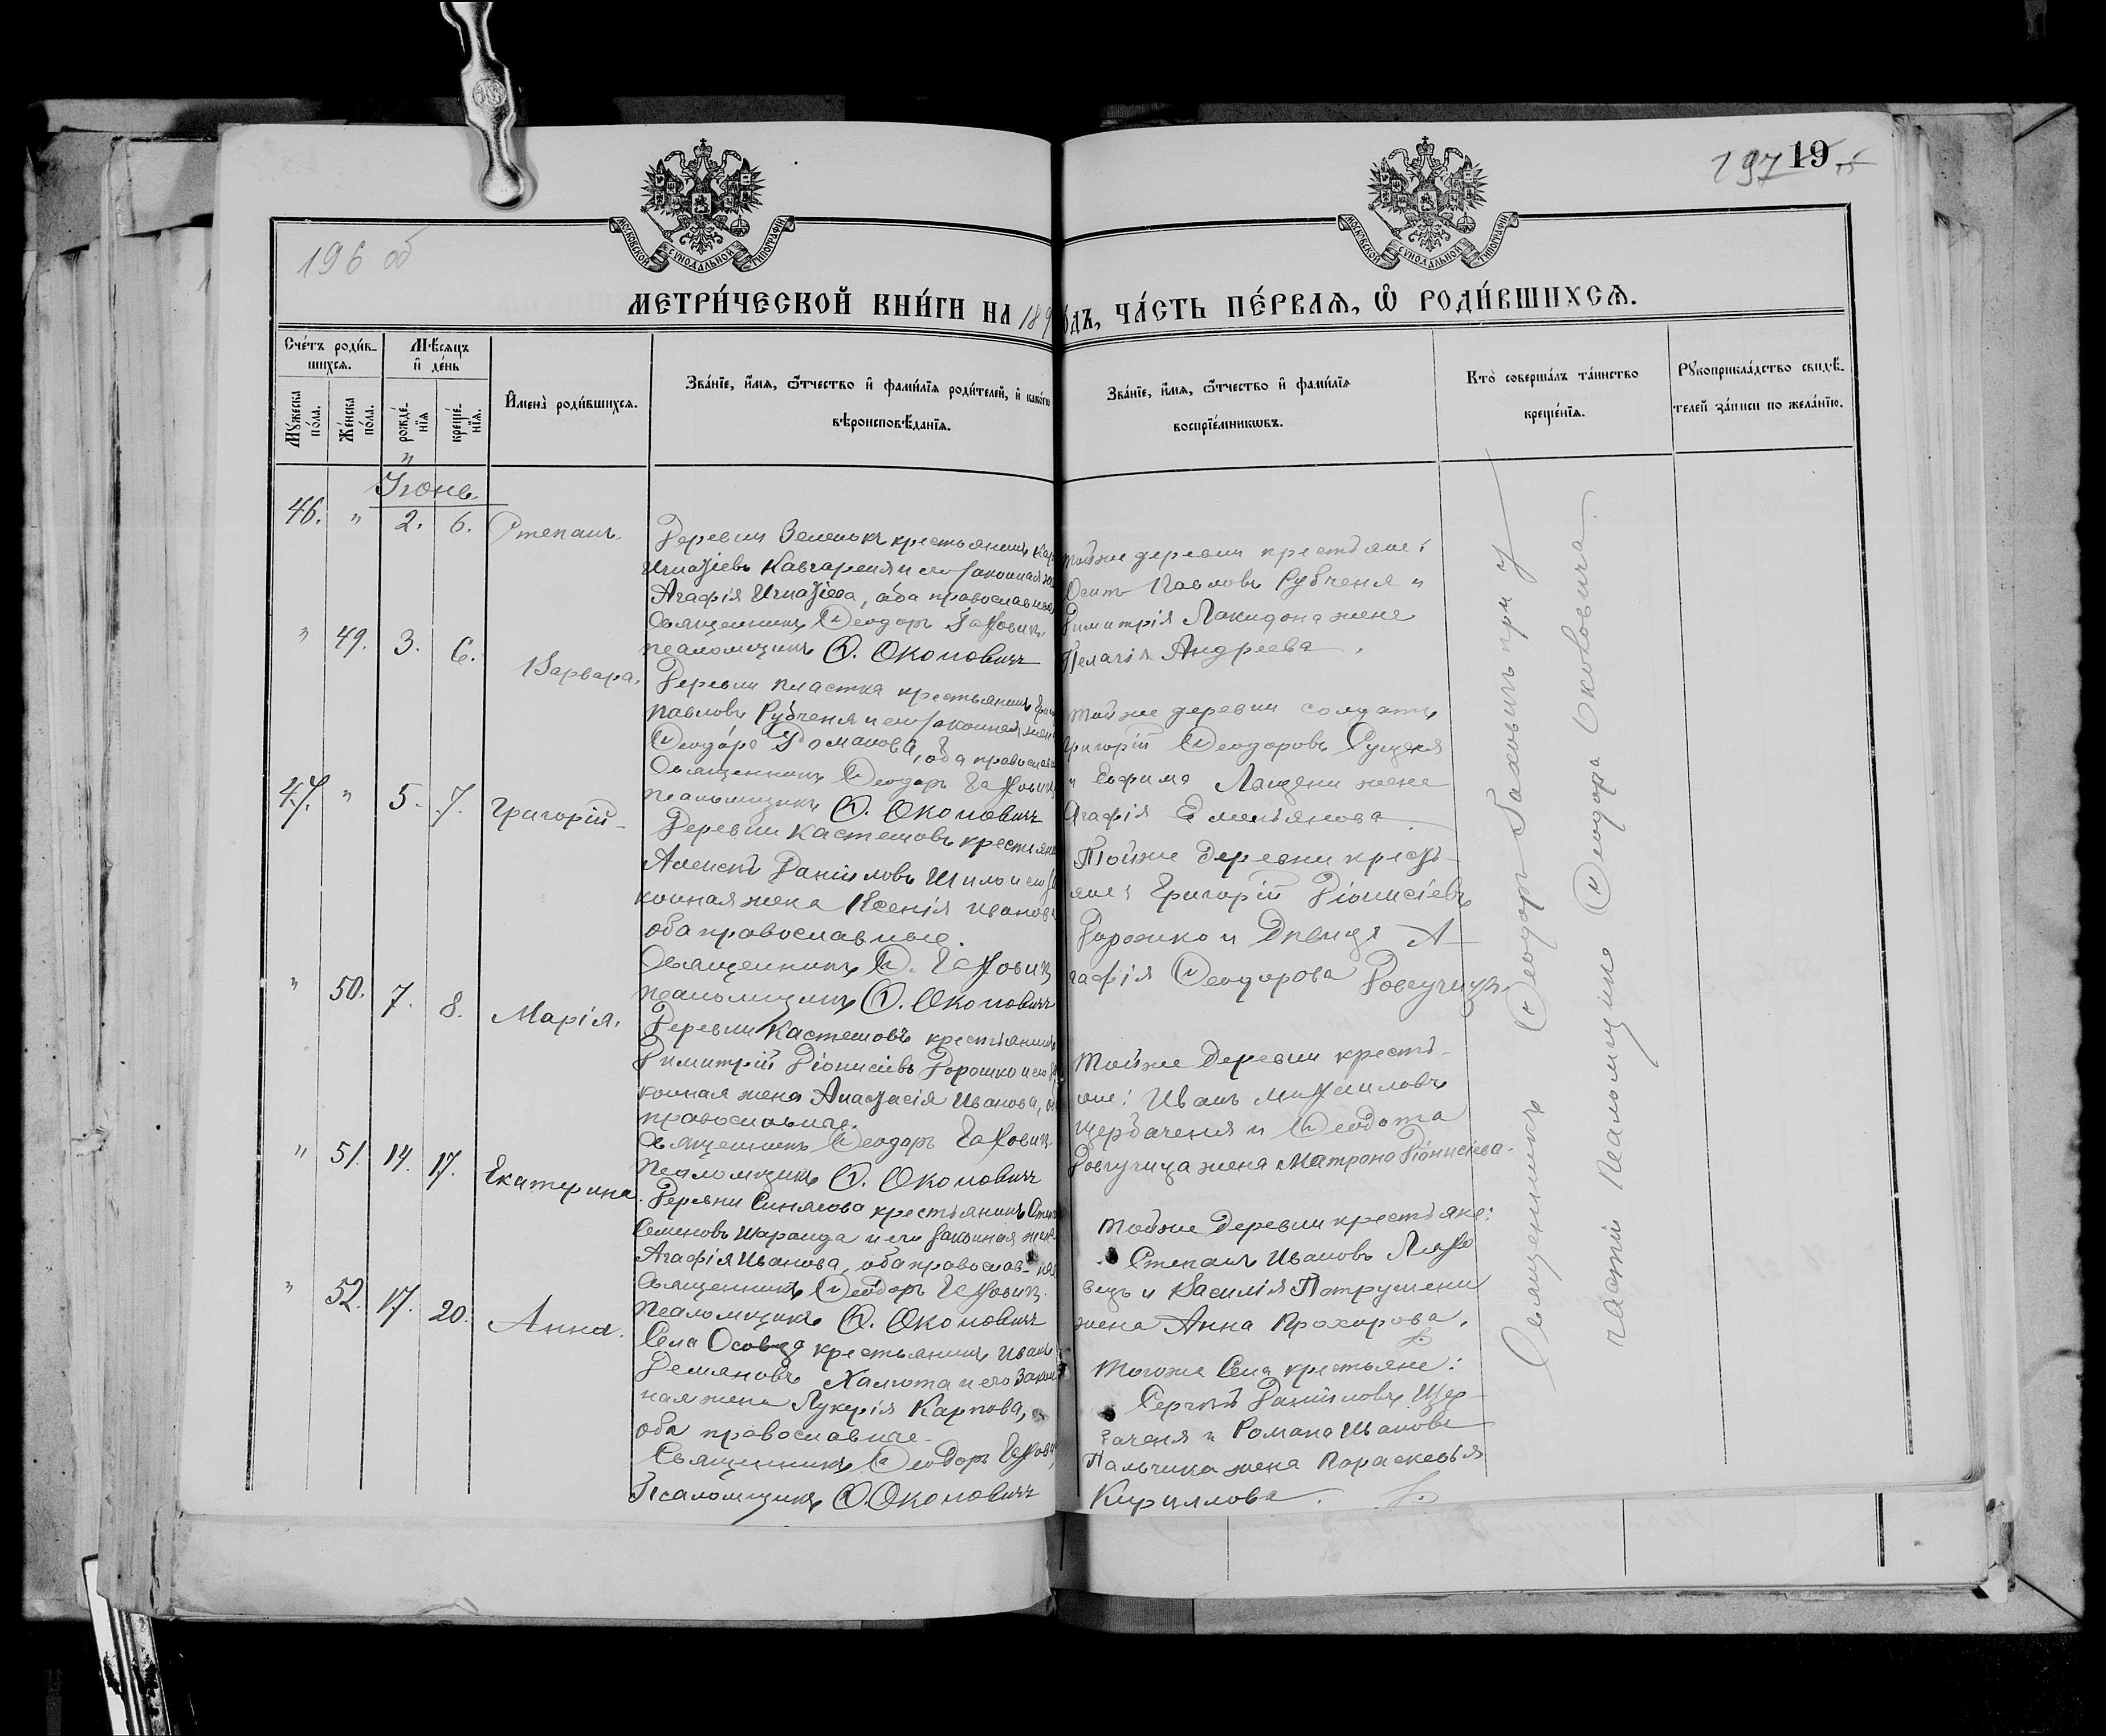 МОСКОВСКОЙ СУНОДАЛЬНОЙ ТИПОГРАФІИ
МОСКОВСКОЙ СУНОДАЛЬНОЙ ТИПОГРАФІИ
197 19
196 об
МЕТРИ́ЧЕСКОЙ КНИ́ГИ НА 189
ОДЪ, ЧА́СТЬ ПЕ́РВАѦ, Ѡ҆ РОДИ́ВШИХСѦ.
Сче́тъ роди́в-
шихсѧ.
Мꙋ́жеска по́ла.
Же́нска по́ла.
Мѣ́сѧцъ
и҆ де́нь
рожде́-
нїѧ
креще́-
нїѧ.
И҆мена̀ роди́вшихсѧ.
Зва́нїе, и҆́мѧ, ѻ҆́тчество и҆ фами́лїѧ роди́телей, и҆ како́гѡ
вѣроисповѣ́данїѧ.
Зва́нїе, и҆́мѧ, ѻ҆́тчество и҆ фами́лїѧ
воспрїе́мникѡвъ.
Кто̀ соверша́лъ та́инство
креще́нїѧ.
Рꙋкоприкла́дство свидѣ́-
телей за́писи по жела́нїю.
Іюнь.
46. " 2. 6. Степанъ.
Деревни Зеленокъ крестьянинъ
Игнатіевъ Кавгареня и его законная
Агафія Игнатіева, оба православные
Священникъ Ѳеодоръ Гахович.
псаломщикъ Ѳ. Околовичъ
тойже деревни крестьяне:
Осипъ Павловъ Рубченя и
Димитрія Лакидона жена
Пелагія Андреева.
" 49. 3. 6. Варвара.
Деревни Пластка крестьянинъ
Павловъ Рубченя и его законная жен
Ѳеодора Романова, оба православ
Священникъ Ѳеодоръ Гахович
псаломщикъ Ѳ. Околовичъ
тойже деревни солдатъ
Григорій Ѳеодоровъ Рущеня
и Ефима Лащени жена
Агафія Емельянова
47. " 5. 7. Григорій
Деревни Кастешовъ крестьян
Алексѣй Даніиловъ Шило и его за
конная жена Ксенія Иванов
оба православные.
Священникъ Ѳ. Гахович
псаломщикъ Ѳ. Околовичъ
Тойже деревни кресть-
яне: Григорій Діонисіевъ
Дорошко и Дѣвица А-
гафія Ѳеодорова Ровгучица.
" 50. 7. 8. Марія.
Деревни Кастешовъ крестьянинъ
Димитрій Діонисіевъ Дорошко и его за
конная жена Анастасія Иванова, об
православные.
Священникъ Ѳеодоръ Гахович.
Псаломщикъ Ѳ. Околовичъ
тойже Деревни кресть-
яне: Иванъ Михаиловъ
Щербаченя и Ѳеодота
Ровгучица жена Матрона Діонисіева.
" 51. 14. 17. Екатерина.
Деревни Синягова крестьянинъ
Семеновъ Шаранда и его законная жена
Агафія Иванова, оба православ-
Священникъ Ѳеодоръ Гахович.
Псаломщикъ Ѳ. Околовичъ
тойже Деревни крестьяне:
Степанъ Ивановъ Ляхо
вецъ и Василія Патрушени
жена Анна Прохорова.
" 52. 17. 20. Анна.
Села Осовца крестьянинъ Иванъ
Демяновъ Халюта и его Закон
ная жена Лукерія Карпова,
оба православные.
Священникъ Ѳеодоръ Гахович
Псаломщикъ Ѳ. Околовичъ
Тогоже Села крестьяне:
Сергѣй Даніиловъ Щер-
баченя и Романа Иванова
Пальчика жена Параскевія
Кириллова.
Священникъ Ѳеодоръ Гаховичъ при у
частіи Псаломщика Ѳеодора Околовича.